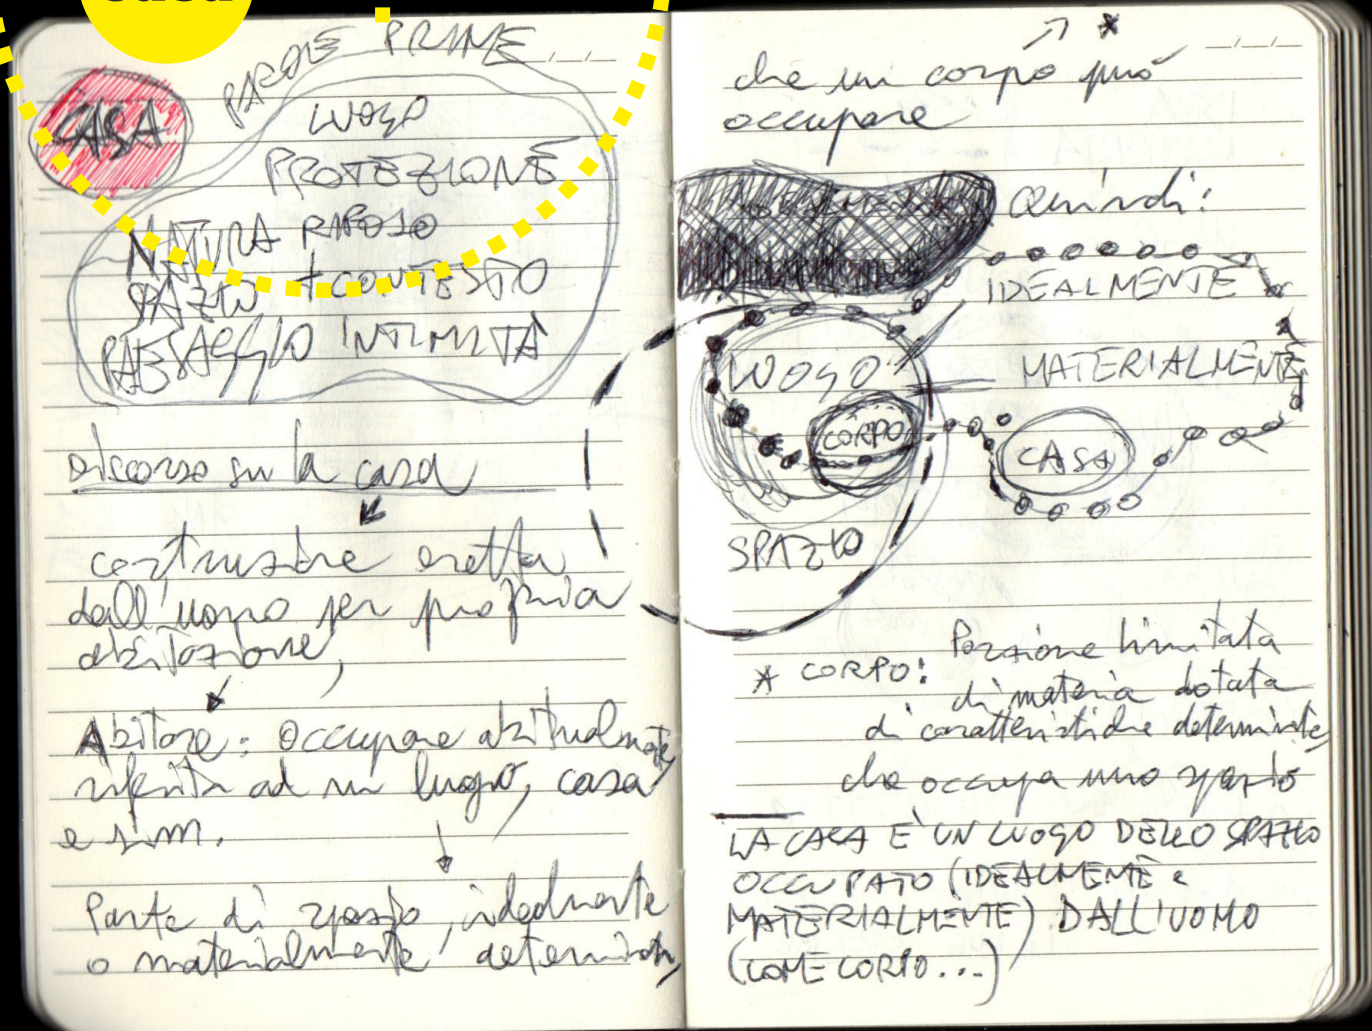 CASA
PAROLE PRIME
LUOGO
PROTEZIONE
NATURA RIPOSO
SPAZIO + CONTESTO
PAESAGGIO INTIMITÀ
Discorso su la casa
costruzione eretta
dall'uomo per propria
abitazione,
Abitare: occupare abitualmente,
riferito ad un luogo, casa
e sim.
Parte di spazio, idealmente
o materialmente determinata,
*
che un corpo può
occupare
Quindi:
IDEALMENTE
LUOGO
MATERIALMENTE
CORPO
CASA
SPAZIO
* CORPO: Porzione limitata
di materia dotata
di caratteristiche determinate,
che occupa uno spazio
LA CASA E' UN LUOGO DELLO SPAZIO
OCCUPATO (IDEALMENTE e
MATERIALMENTE) DALL'UOMO
(COME CORPO...)